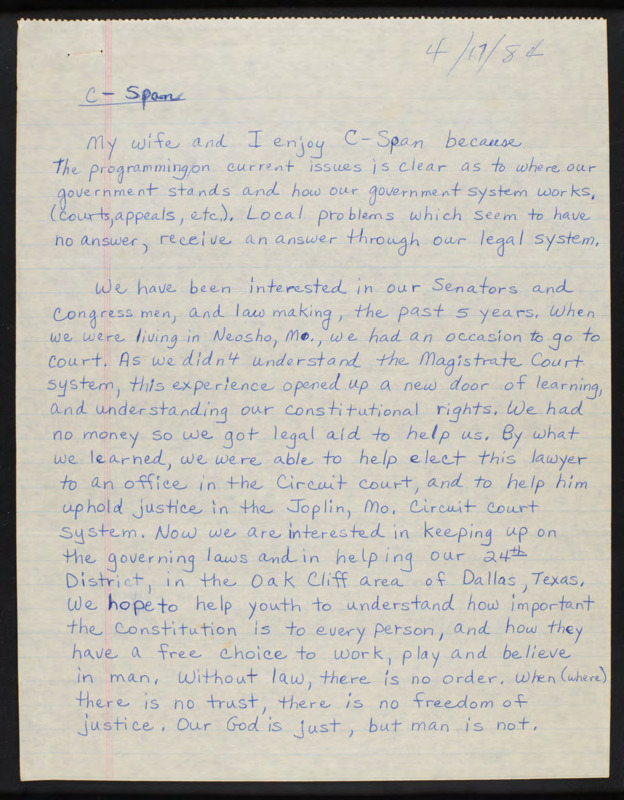 4/17/84
C- Span
My wife and I enjoy C-Span because
the programming on current issues is clear as to where our
government stands and how our government system works,
(courts, appeals, etc.). Local problems which seem to have
no answer, receive an answer through our legal system.
We have been interested in our Senators and
Congress men, and law making, the past 5 years. When
we were living in Neosho, Mo., we had an occasion to go to
court. As we didn't understand the Magistrate Court
system, this experience opened up a new door of learning,
and understanding our constitutional rights. We had
no money so we got legal aid to help us. By what
we learned, we were able to help elect this lawyer
to an office in the Circuit court, and to help him
uphold justice in the Joplin, Mo. Circuit court
system. Now we are interested in keeping up on
the governing laws and in helping our 24th
District, in the Oak Cliff area of Dallas, Texas.
We hope to help youth to understand how important
the Constitution is to every person, and how they
have a free choice to work, play and believe
in man. Without law, there is no order. When (where)
there is no trust, there is no freedom of
justice. Our God is just, but man is not.